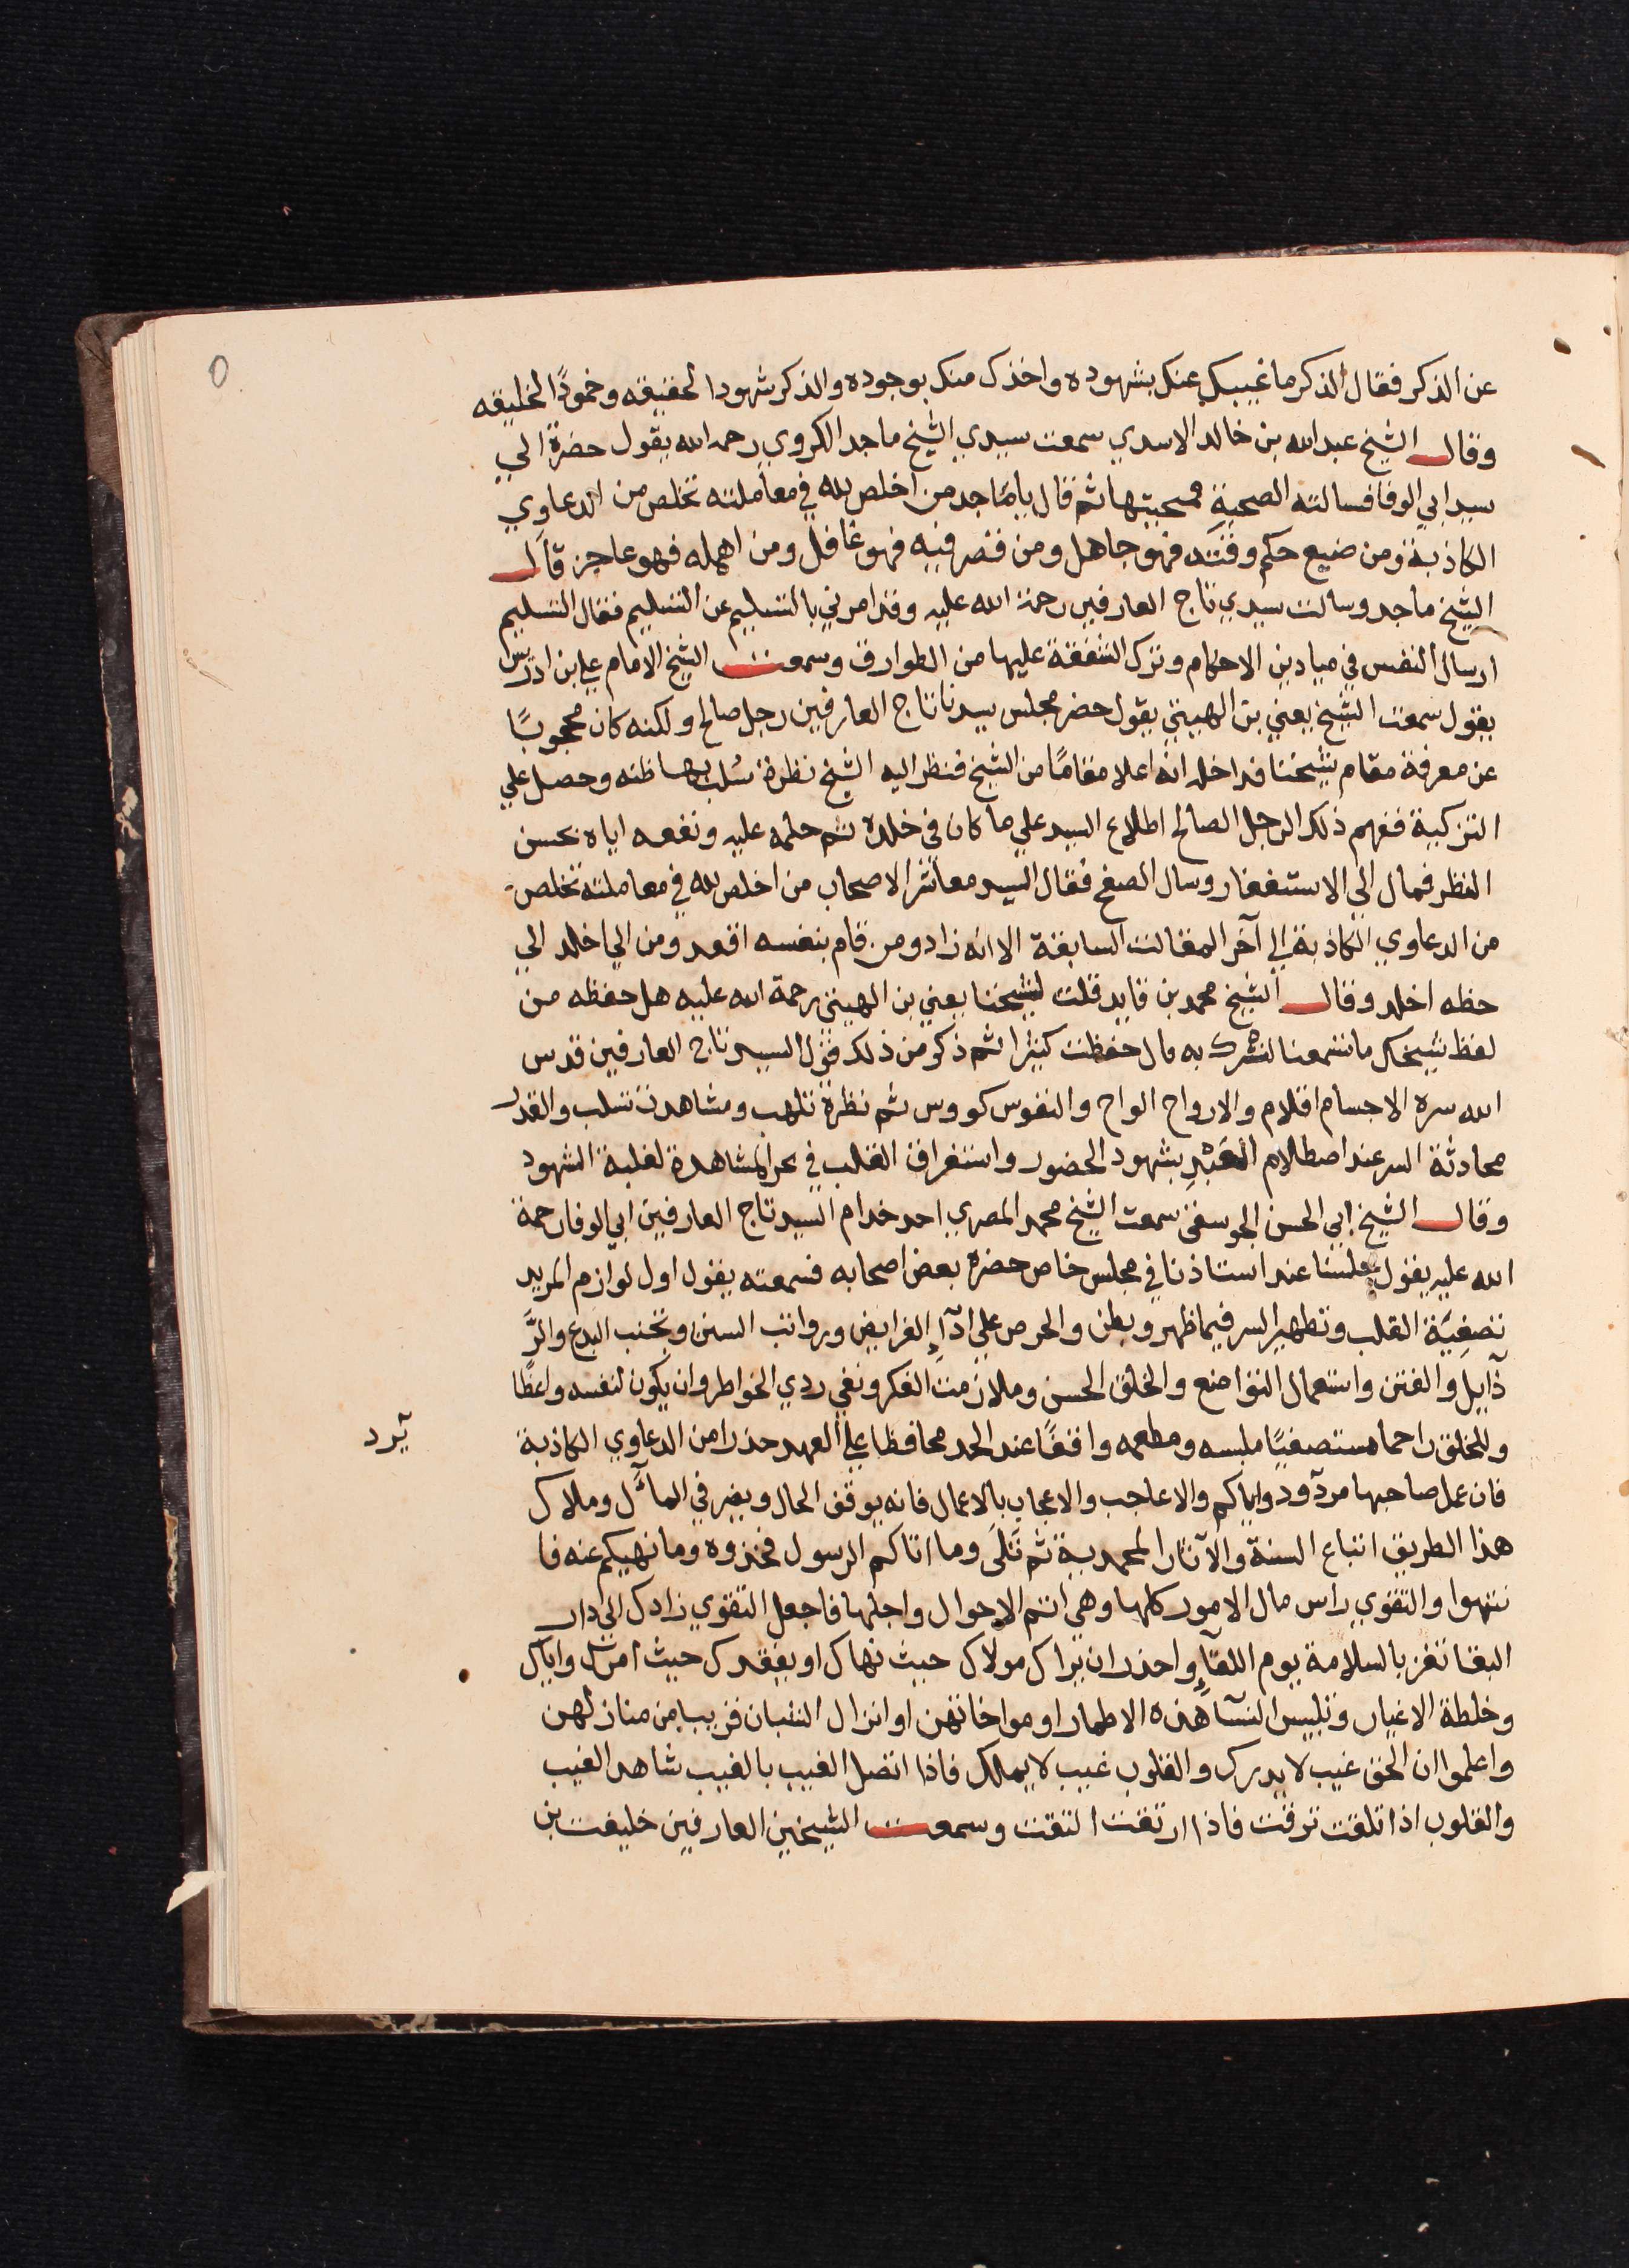 ٥
عن الذكر فقال الذكر ما غيبك عنك بشهوده واخذك منك بوجوده والذكر شهودا لحقيقه وخمودًا لخليقه
وقال الشيخ عبد الله بن خالد الاسدي سمعت سيدي الشيخ ماجد الكروي رحمه الله يقول حضرة الي
سيد ابي الوفا فسالته الصحبة فصحبتها ثم قال يا ماجد من اخلص لله في معاملته تخلص من الدعاوي
الكاذبة ومن ضيع حكم وقته فهو جاهل ومن قصر فيه فهو غافل ومن اهمله فهو عاجز قال
الشيخ ماجد وسالت سيدي تاج العارفين رحمة الله عليه وقد امرني بالتسليم عن التسليم فقال التسليم
ارسال النفس في ميادين الاحكام وترك الشفقة عليها من الطوارق وسمعت الشيخ الامام علي بن ادريس
يقول سمعت الشيخ يعني بن الهيتي يقول حضر مجلس سيدنا تاج العارفين رجل صالح ولكنه كان محجوبًا
عن معرفة مقام شيخنا فداخله انه اعلا مقامًا من الشيخ فنظر اليه الشيخ نظرة سُلب بها ظنه وحصل علي
التزكية ففهم ذلك الرجل الصالح اطلاع السيد علي ما كان في خلده ثم حلمه عليه ونفعه اياه بحسن
النظر فمال الي الاستغفار وسال الصفح فقال السيد معاشر الاصحاب من اخلص لله في معاملته تخلص
من الدعاوي الكاذبة الي آخر المقالت السابقة الا انه زاد ومن قام بنفسه اقعد ومن الي اخلد الي
حظه اخلد وقال الشيخ محمد بن قايد قلت لشيخنا يعني بن الهيتي رحمة الله عليه هل حفظه من
لفظ شيخك ما تسمعنا لنتبرك به قال حفظت كثيرا ثم ذكر من ذلك قول السيد تاج العارفين قدس
الله سره الاجسام اقلام والارواح الواح والنفوس كووس ثم نظرة تلهب ومشاهدت تسلب والقدر
محادثة السر عند اصطلام العبد بشهود الحضور واستغراق القلب في بحر المشاهدة لغلبة الشهود
وقال الشيخ ابي الحسن الجوسقي سمعت الشيخ محمد المصري احد خدام السيد تاج العارفين ابي الوفا رحمة
الله عليه يقول جلسنا عند استاذنا في مجلس خاص حضره بعض اصحابه فسمعته يقول اول لوازم المريد
تصفيَة القلب وتطهير السر فيما ظهر وبطن والحرص علي ادآءِ الفرايض ورواتب السنن وتجنب البدع والرَّ
ذآيل والفتن واستعمال التواضع والخلق الحسن وملازمت الفكر ونفي ردي الخواطر وان يكون لنفسه واعظًا
وللخلق راحما مستصفيًا ملبسه ومطعمه واقفًا عند الحد محافظا علي العهد حذرا من الدعاوي الكاذبة
يرد
فان عمل صاحبها مردود واياكم والاعاجب والاعجاب بالاعمال فانه يوقف الحال ويضر في المآل وملاك
هذا الطريق اتباع السنة والآثار المحمدية ثم تَلَي وما اتاكم الرسول فخذوه وما نهيكم عنه فا
نتهوا والتقوي راس مال الامور كلها وهي اتم الاحوال واجلها فاجعل التقوي زادك الي دار
البقا تفز بالسلامة يوم اللقآءِ واحذر ان يراك مولاك حيث نهاك او يفقدك حيث امرك واياك
وخلطة الاغيار وتلبيس النسآ هذه الاطمار او مواخاتهن او انزال الشبان قريب من منازلهن
واعلموا ان الحق غيب لا يدرك والقلوب غيب لا يملك فاذا اتصل الغيب بالغيب شاهد الغيب
والقلوب اذا تلقت ترقت فاذا ارتقت التقت وسمعت الشيخين العارفين خليفت بن